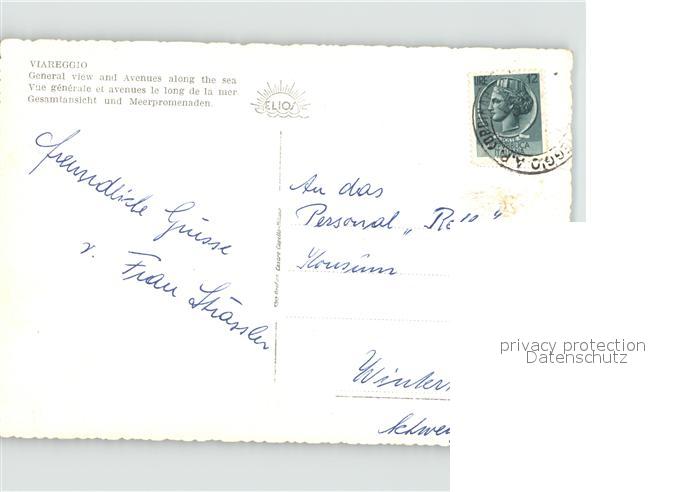 VIAREGGIO
General view and Avenues along the sea
Vue générale et avenues le long de la mer.
Gesamtansicht und Meerpromenaden.
ELIOS
LIRE 12
freundliche Grüsse
v. Frau Strässler
An das
Personal „Re
Konsum
Winter
Schwei
privacy protection
Datenschutz